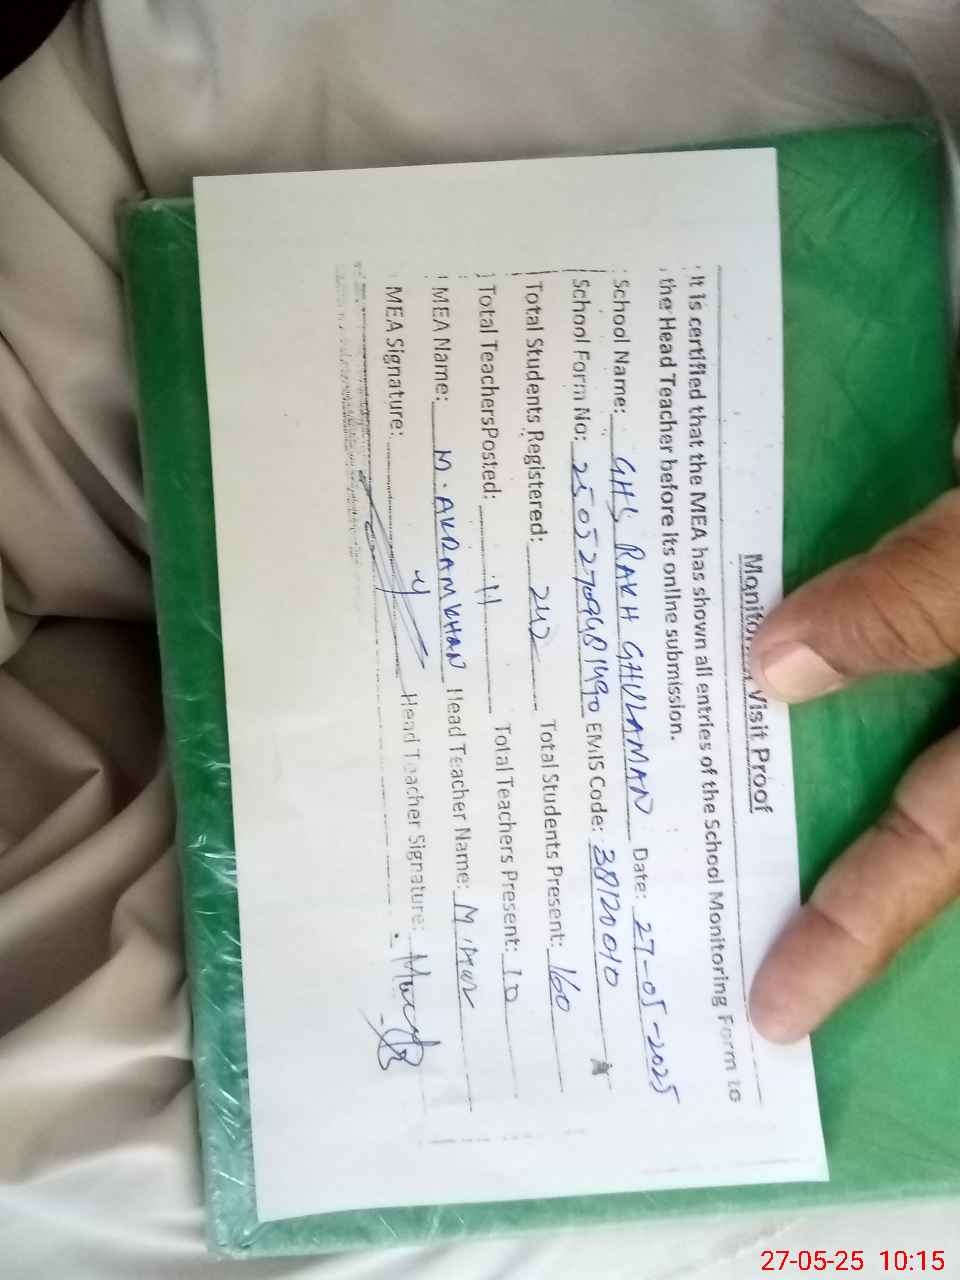 Monitoring Visit Proof
It is certified that the MEA has shown all entries of the School Monitoring Form to
the Head Teacher before its online submission.
School Name: GHS RAKH GHULAMAN Date: 27-05-2025
School Form No: EMIS Code: 38120010
Total Students Registered: 242 Total Students Present: 160
Total TeachersPosted: 11 Total Teachers Present: 10
MEA Name: M. AKRAM KHAN Head Teacher Name: M.
MEA Signature: Head Teacher Signature:
27-05-25 10:15